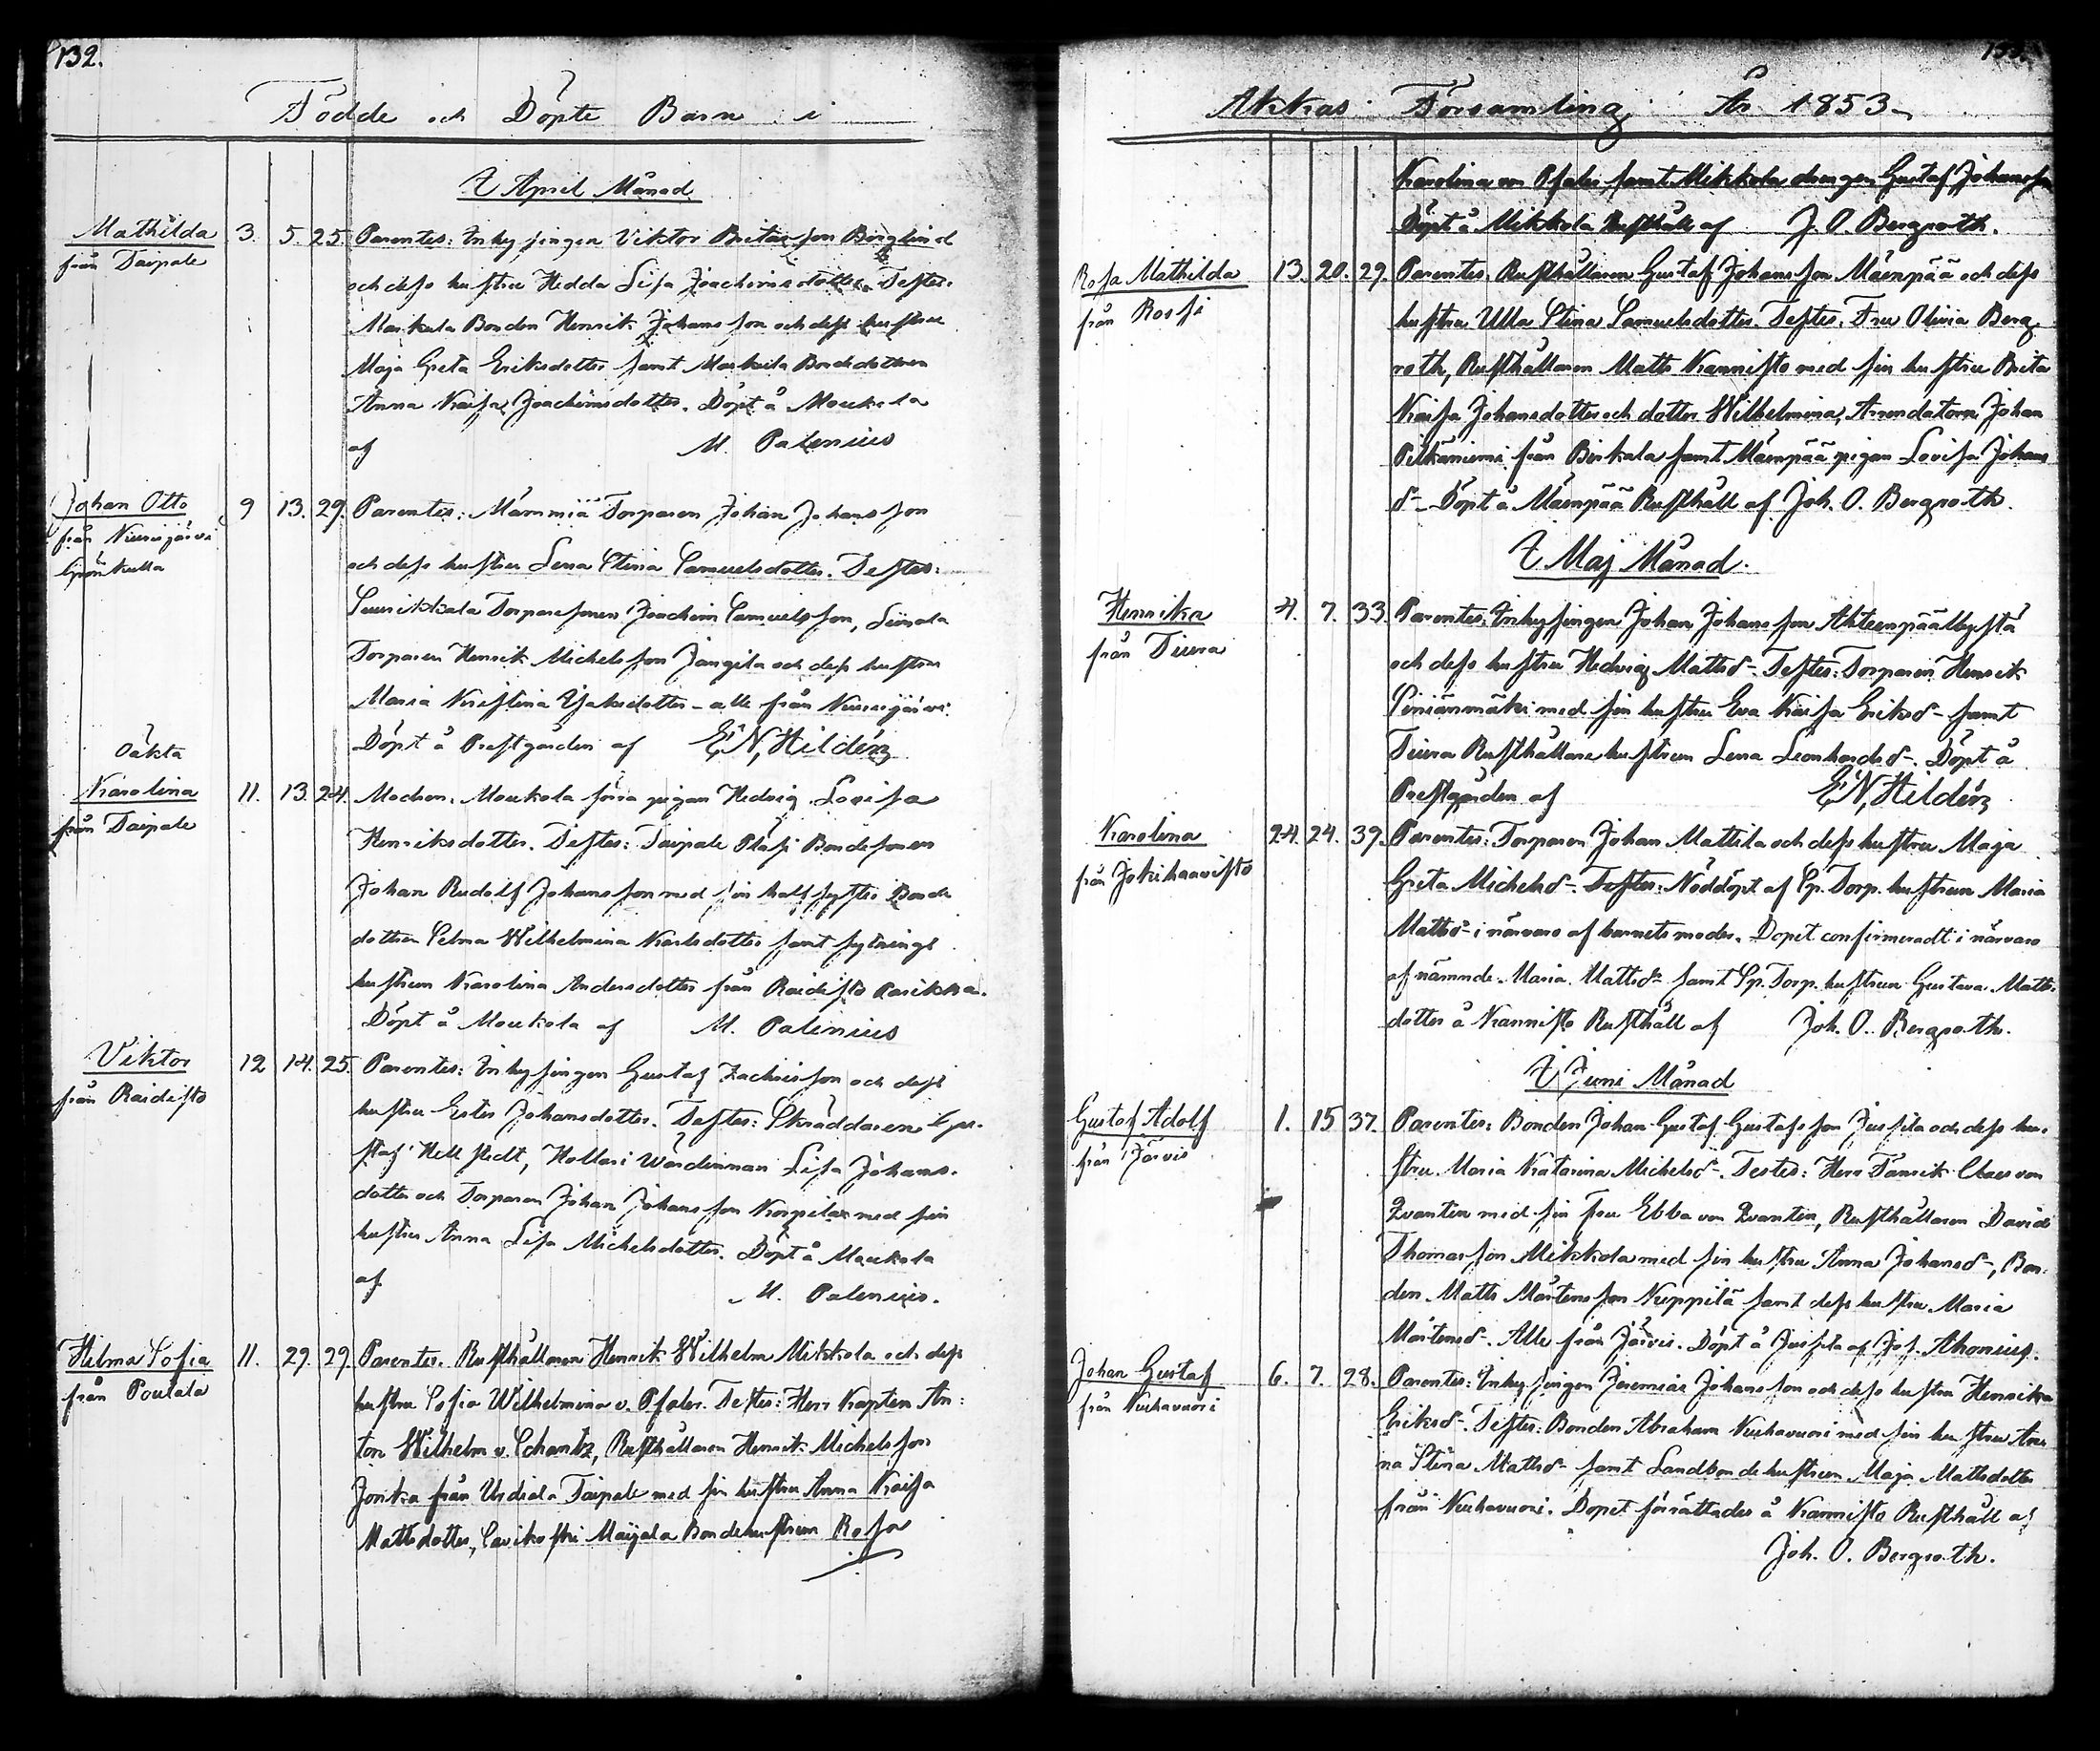 132.
Födde och Döpte Barn i
I April Månad
Mathilda 3. 5. 25. Parentes: Inhysingen Viktor Britasson Berglund
från Taipale
och dess hustru Hedda Lisa Joachimsdotter. Testes:
Maukula Bonden Henrik Johansson och dess hustru
Maja Greta Eriksdotter samt Maukula Bondedottren
Anna Kaisa Joachimsdotter. Döpt å Moukola
af M. Palenius
Johan Otto 9 13. 29. Parentes: Mämmiä Torparen Johan Johansson
från Kuurijärvi
Grönkulla
och dess hustru Lena Stina Samuelsdotter. Testes:
Torparesonen Joachim Samuelsson,
Torparen Henrik Michelsson Jangila och dess hustru
Maria Kristina Isaksdotter - alle från Kuurijärvi.
Döpt å Prestgården af E. N. Hildén
Oäkta
Karolina 11. 13. 24. Modren: Moukola förra pigan Hedvig Lovisa
från Taipale
Henriksdotter. Testes: Taipale Bondesonen
Johan Rudolf Johansson med sin halfsyster Bonde
dottren Selma Wilhelmina Karlsdotter samt sytnings
hustrun Karolina Andersdotter från Raidisto Parikka.
Döpt å Moukola af M. Palenius
Viktor 12 14. 25. Parentes: Inhysingen Gustaf Zachrisson och dess
från Raidisto
hustru Ester Johansdotter. Testes: Skräddaren Gu-
staf Hellstedt, Hollari Värdinnan Lisa Johans-
dotter och Torparen Johan Johansson Korpila med sin
hustru Anna Lisa Michelsdotter. Döpt å Moukola
af M. Palenius.
Hilma Sofia 11. 29. 29. Parentes: Rusthållaren Henrik Wilhelm Mikkola och dess
från Toulala
hustru Sofia Wilhelmina v. Pfaler. Testes: Herr Kapten An-
ton Wilhelm v. Schantz, Rusthållaren Henrik Michelsson
från Urdiala Taipale med sin hustru Anna Kaisa
Mattsdotter, Savikoski Maijala Bondehustrun Rosa
Akkas Församling År 1853
Karolina von Pfaler samt Mikkola drengen Gustaf Johansson
Döpt å Mikkola Rusthåll af J. O. Bergroth.
Rosa Mathilda 13. 20. 29. Parentes: Rusthållaren Gustaf Johansson Mäenpää och dess
från Rossi
hustru Ulla Stina Samuelsdotter. Testes: Fru Olivia Berg
roth, Rusthållaren Matts Kannisto med sin hustru Brita
Kaisa Johansdotter och dotter Wilhelmina, Arrendatorn Johan
Pitkäniemi från Birkala samt Mäenpää pigan Lovisa Johans
dr. Döpt å Mäenpää Rusthåll af Joh. O. Bergroth.
I Maj Månad.
Henrika 4. 7. 33. Parentes: Inhysingen Johan Johansson Ahteenpäälbystä
från Tiura
och dess hustru Hedvig Mattsdr. Testes: Torparen Henrik
Siniänmäki med sin hustru Eva Kaisa Eriksdr. samt
Tiura Rusthållarehustrun Lena Leonhardsdr. Döpt å
Prestgården af E. N. Hildén
Karolina 24. 24. 39. Parentes: Torparen Johan Mattila och dess hustru Maja
från Jokihaavisto
Greta Michelsdr. Testes: Nöddöpt af Sp. Torp. hustrun Maria
Mattsdr. i närvaro af barnets moder. Dopet confirmeradt i närvaro
af nämnde Maria Mattsdr. samt Sp. Torp. hustrun Gustava Matts-
dotter å Kannisto Rusthåll af Joh. O. Bergroth.
I Juni Månad
Gustaf Adolf 1. 15 37. Parentes: Bonden Johan Gustaf Gustafsson Jussila och dess hu-
från Järvis
stru Maria Katarina Michelsdr. Testes: Herr Fänrik Claes von
Qvanten med sin Fru Ebba von Qvanten, Rusthållaren David
Thomasson Mikkola med sin hustru Anna Johansdr., Bon-
den Matts Mårtensson Kuppilä samt dess hustru Maria
Mårtensdr. Alle från Järvis. Döpt å Jussila af Jos. Ahonius.
Johan Gustaf 6. 7. 28. Parentes: Inhysingen Jeremias Johansson och dess hustru Henrika
från Kuhavuori
Eriksdr. Testes: Bonden Abraham Kuhavuori med sin hustru An-
na Stina Mattsdr. samt Landbondehustrun Maja Mattsdotter
från Kuhavuori. Dopet förrättades å Kannisto Rusthåll af
Joh. O. Bergroth.